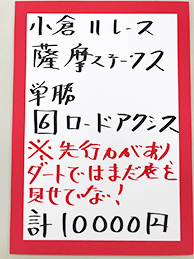 小倉11レース
薩摩ステークス
単勝
6 ロードアクシス
※先行力があり
ダートではまだ底を
見せてない!
計10000円